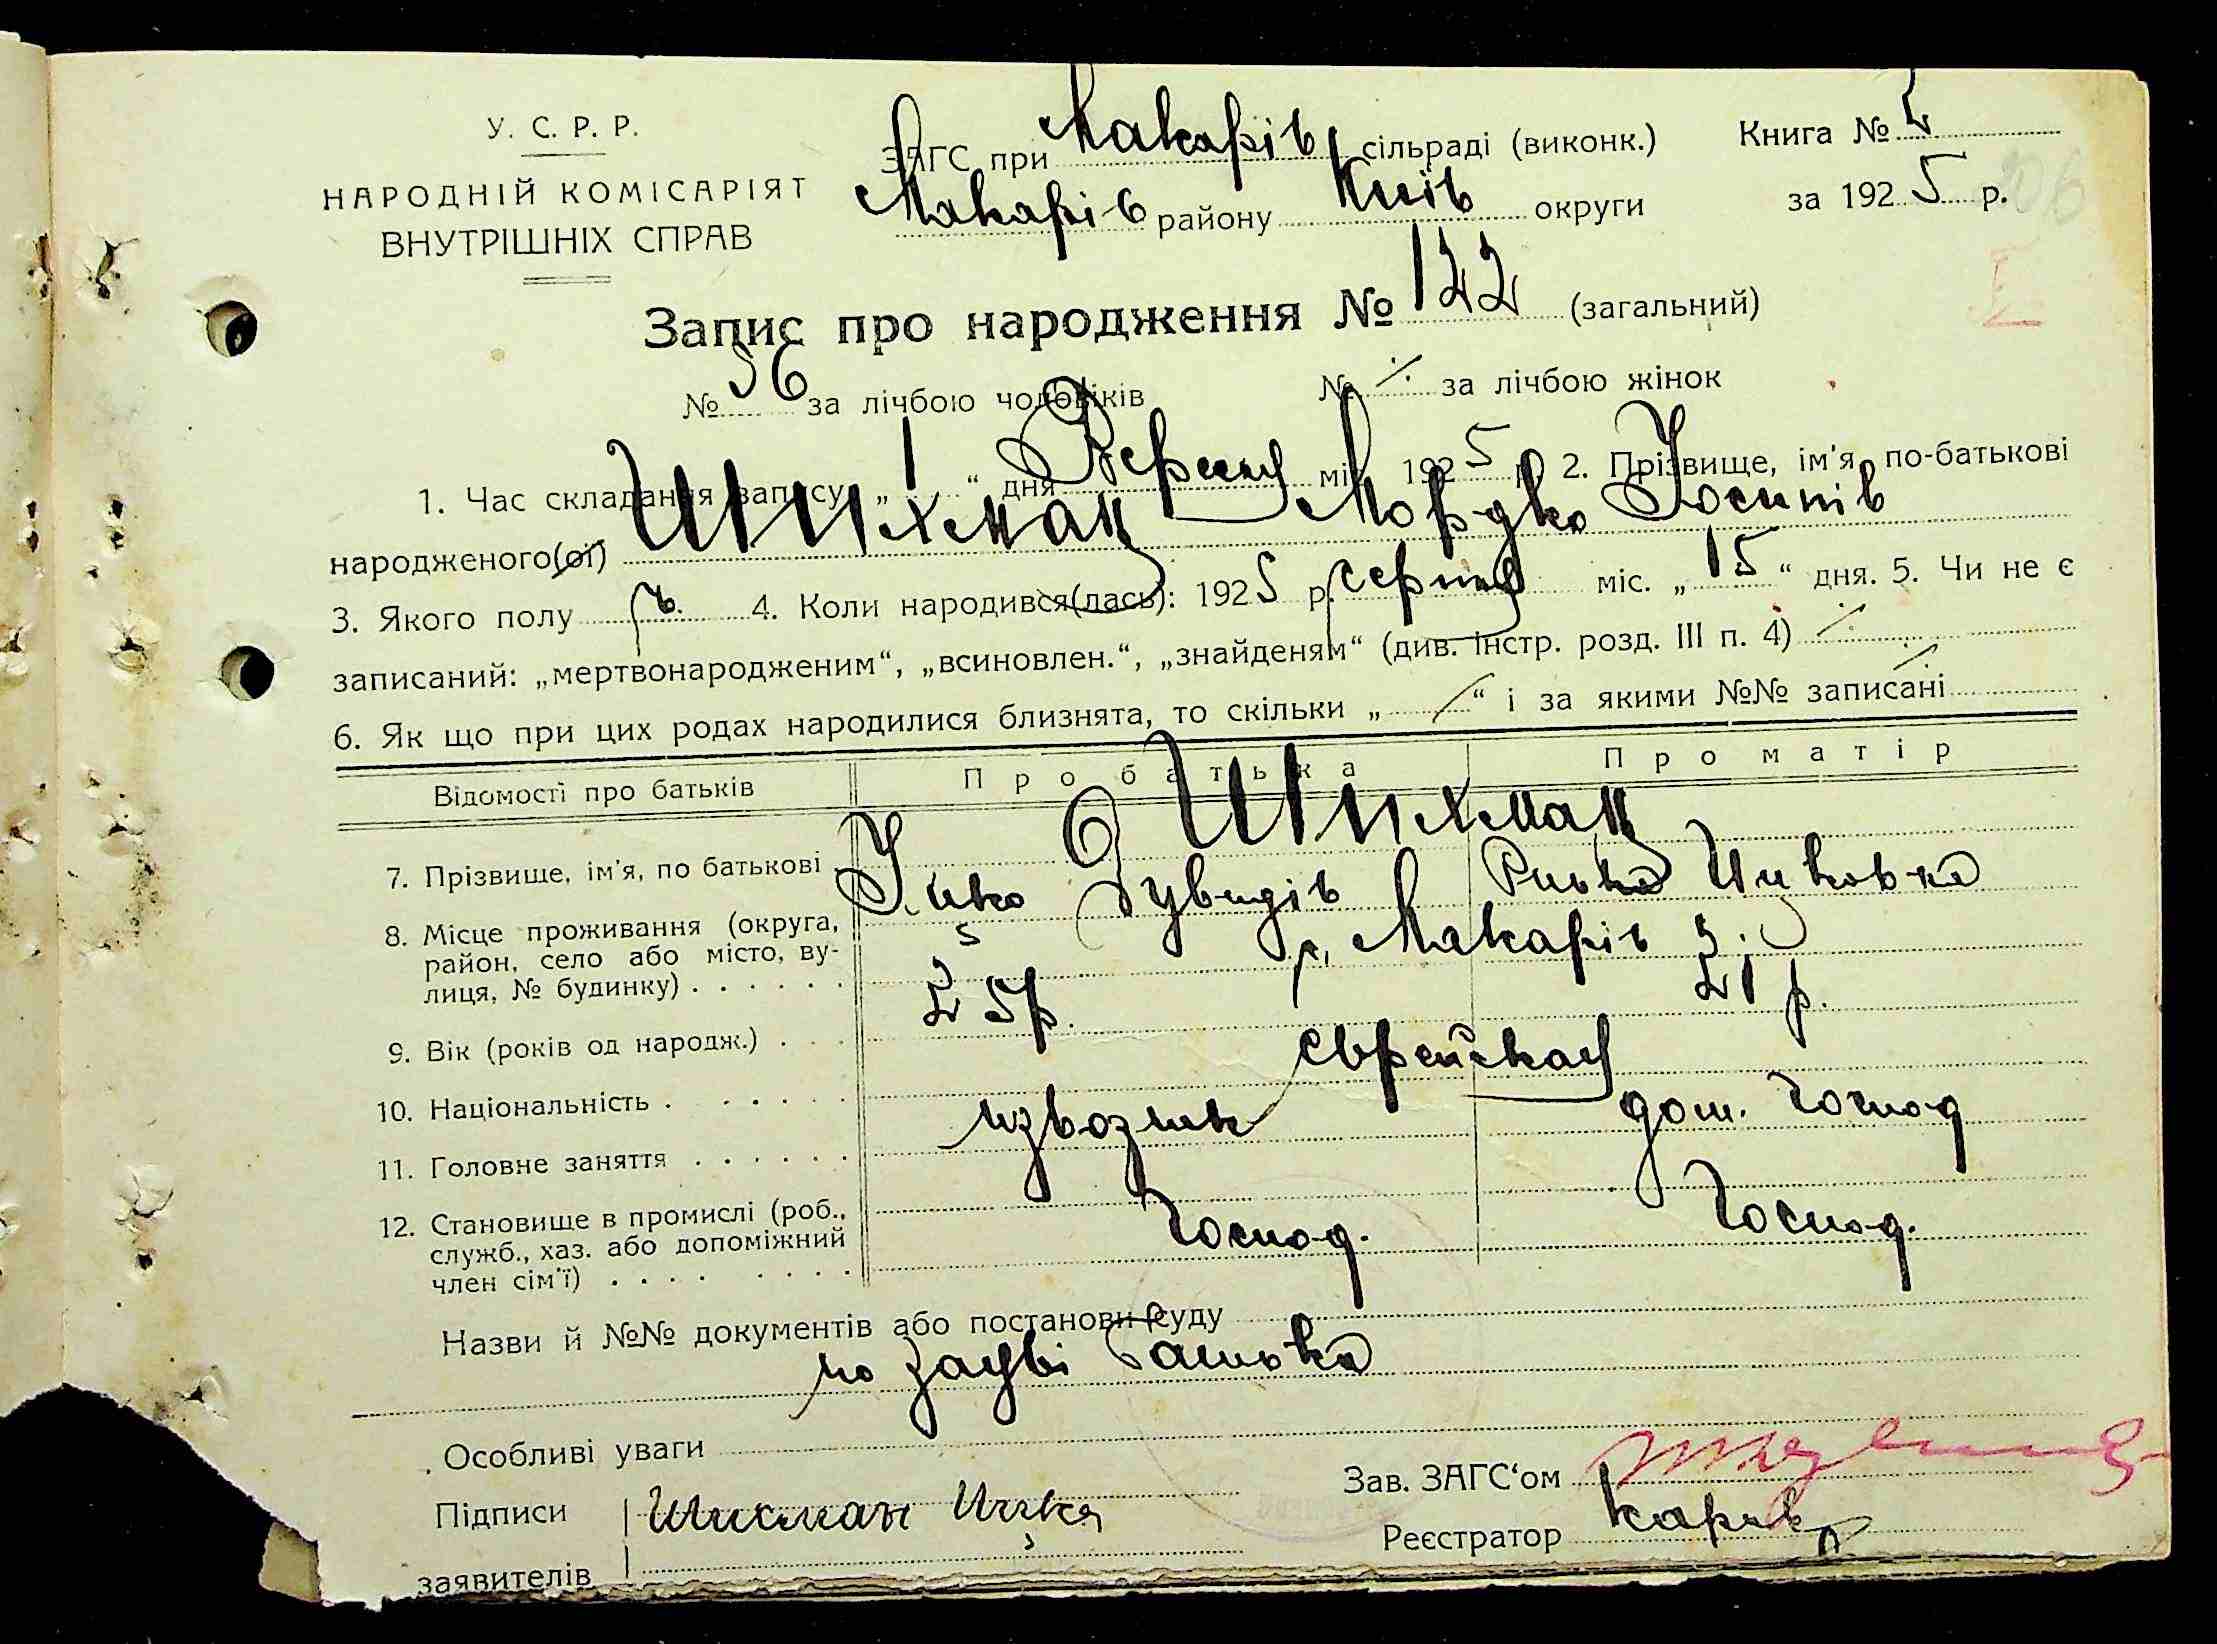 У. С. Р. Р.
НАРОДНІЙ КОМІСАРІЯТ
ВНУТРІШНІХ СПРАВ
ЗАГС при Макарів сільраді (виконк.)
Макарів району Київ округи
Книга № 2
за 1925 р.
Запис про народження № 122 (загальний)
№ 56 за лічбою чоловіків № ·/· за лічбою жінок
1. Час складання запису „ 1 “ дня Вересня міс. 1925 р. 2. Прізвище, ім'я, по-батькові
народженого(ої) Шихман Мордко Йосипів
3. Якого полу ч. 4. Коли народився(лась): 1925 р. серпня міс. „ 15 “ дня. 5. Чи не є
записаний: „мертвонародженим“, „всиновлен.“, „знайденям“ (див. інстр. розд. III п. 4) ·/·
6. Як що при цих родах народилися близнята, то скільки „ / “ і за якими №№ записані ·/·
Відомості про батьків Про батька Про матір
Шихман
7. Прізвище, ім'я, по батькові
8. Місце проживання (округа, район, село або місто, вулиця, № будинку) . . . . . . м. Макарів
9. Вік (років од народж.) . . . 25 р. 21 р.
10. Національність . . . . . . еврейская
11. Головне заняття . . . . . . извозник дом. господ
12. Становище в промислі (роб., служб., хаз. або допоміжний член сім'ї) . . . . . . . . Господ. Господ.
Назви й №№ документів або постанови суду
по заяві батька
Особливі уваги
Підписи Шихман Ицка
заявителів
Зав. ЗАГС'ом
Реєстратор